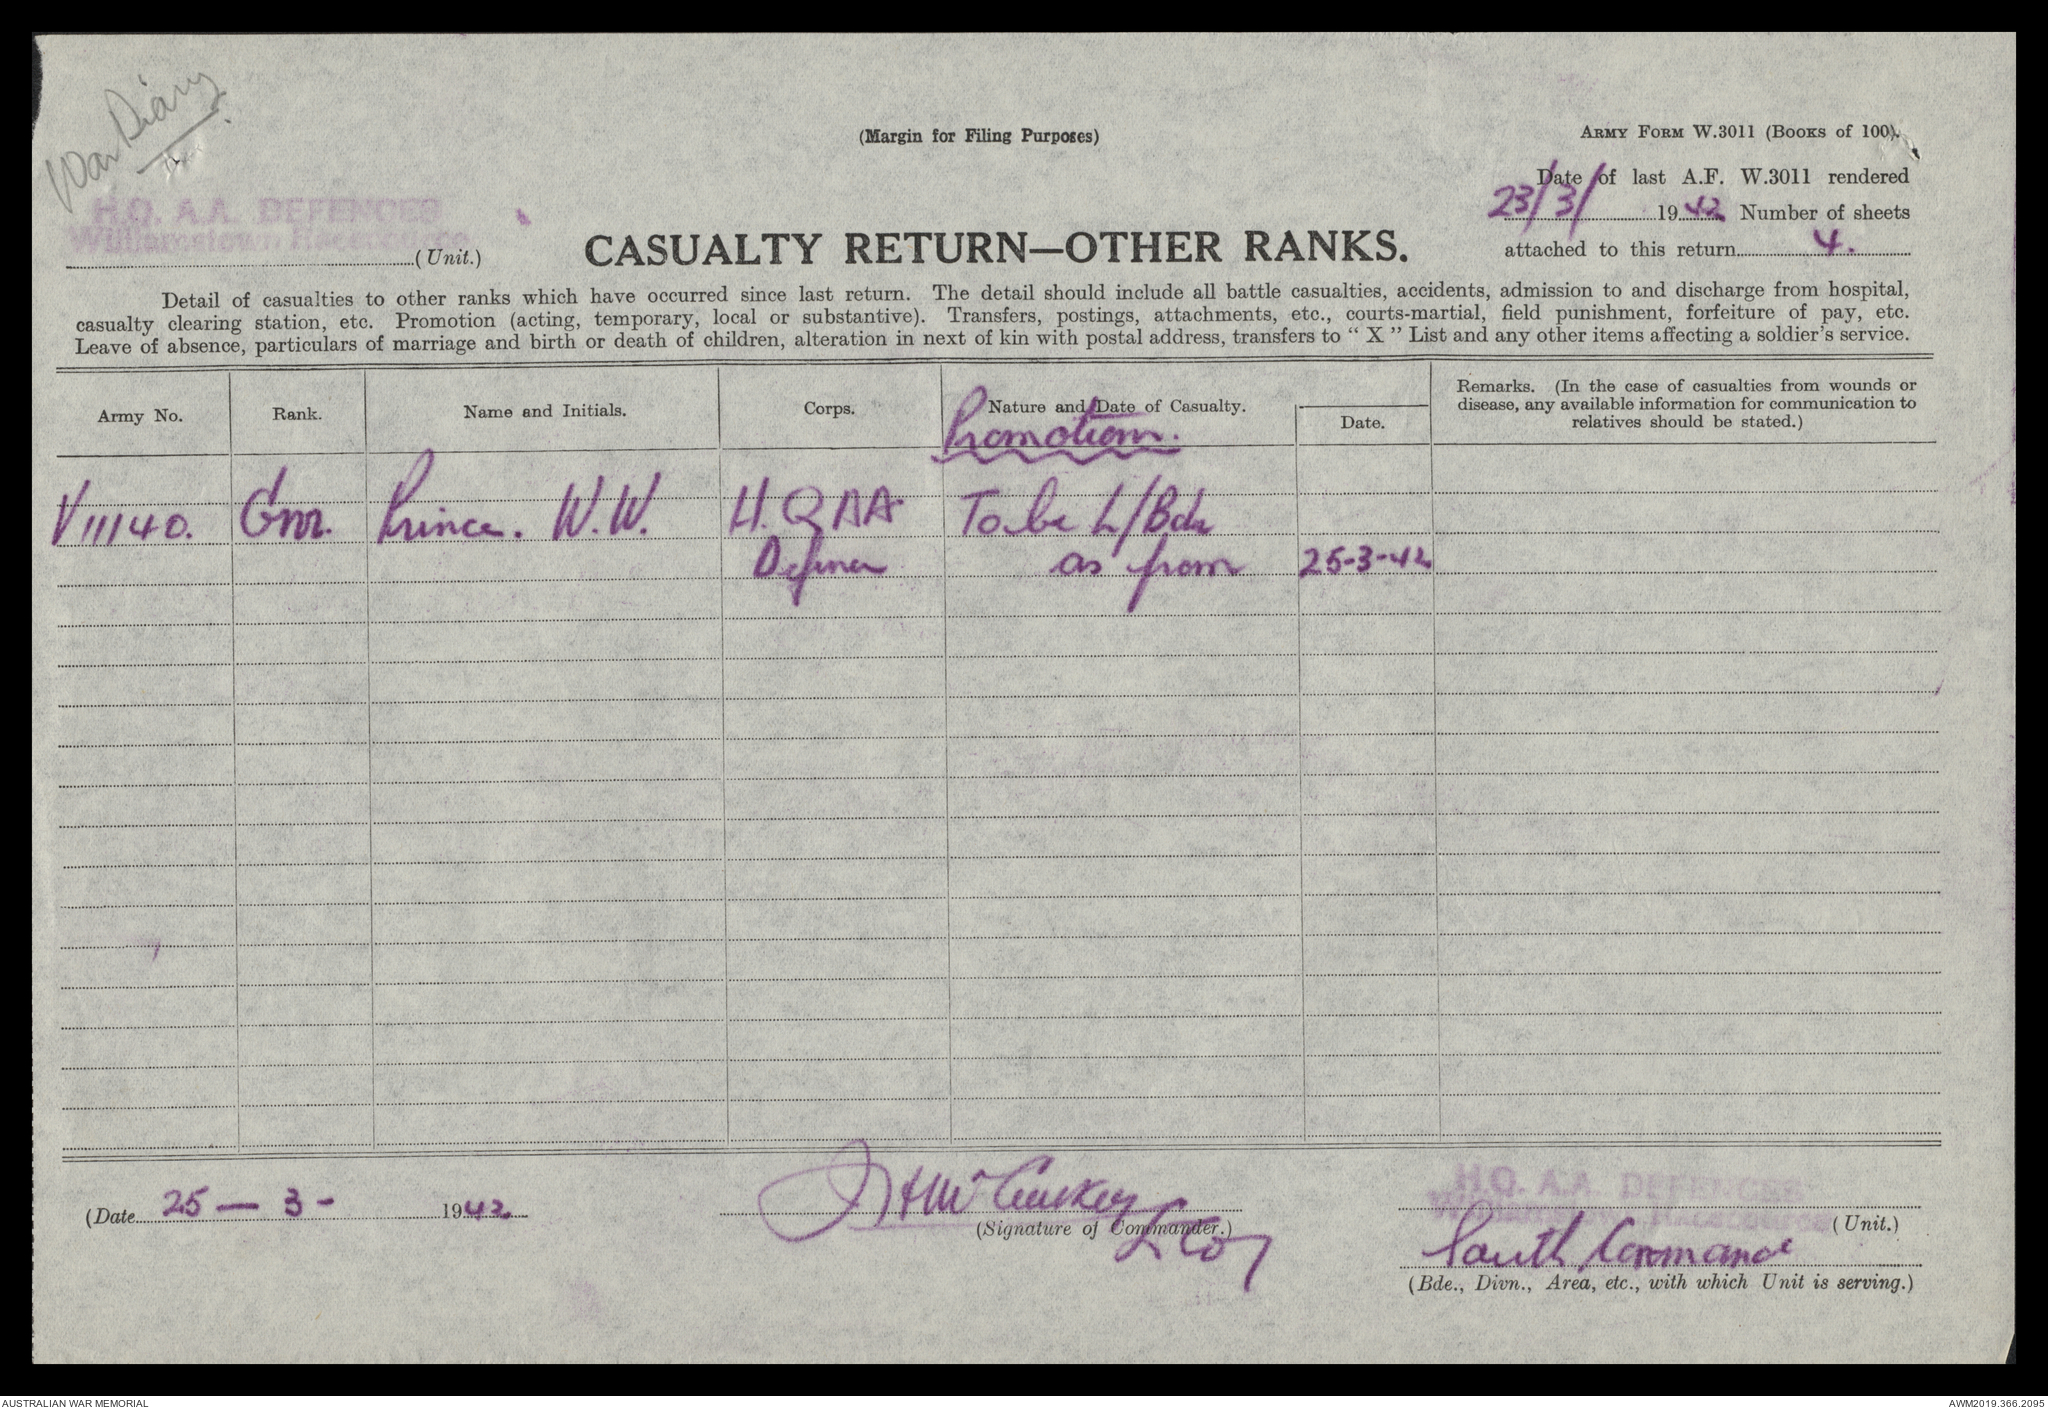 War Diary
(Margin for Filing Purposes)
ARMY FORM W.3011 (BOOKS of 100).
Date of last A.F. W.3011 rendered
23/3/ 1942 Number of sheets
attached to this return 4.
H.Q. A.A. DEFENCES
Williamstown Racecourse
(Unit.)
CASUALTY RETURN—OTHER RANKS.
Detail of casualties to other ranks which have occurred since last return. The detail should include all battle casualties, accidents, admission to and discharge from hospital,
casualty clearing station, etc. Promotion (acting, temporary, local or substantive). Transfers, postings, attachments, etc., courts-martial, field punishment, forfeiture of pay, etc.
Leave of absence, particulars of marriage and birth or death of children, alteration in next of kin with postal address, transfers to “ X ” List and any other items affecting a soldier's service.
Army No. Rank. Name and Initials. Corps. Nature and Date of Casualty. Date. Remarks. (In the case of casualties from wounds or
disease, any available information for communication to
relatives should be stated.)
Promotion.
V11140. Gnr. Prince. W.W. H.Q AA To be L/Bdr
as from 25-3-42
(Date 25 — 3 - 1942
(Signature of Commander.)
H.Q. A.A. DEFENCES
Williamstown Racecourse
(Unit.)
South Command
(Bde., Divn., Area, etc., with which Unit is serving.)
AUSTRALIAN WAR MEMORIAL
AWM2019.366.2095